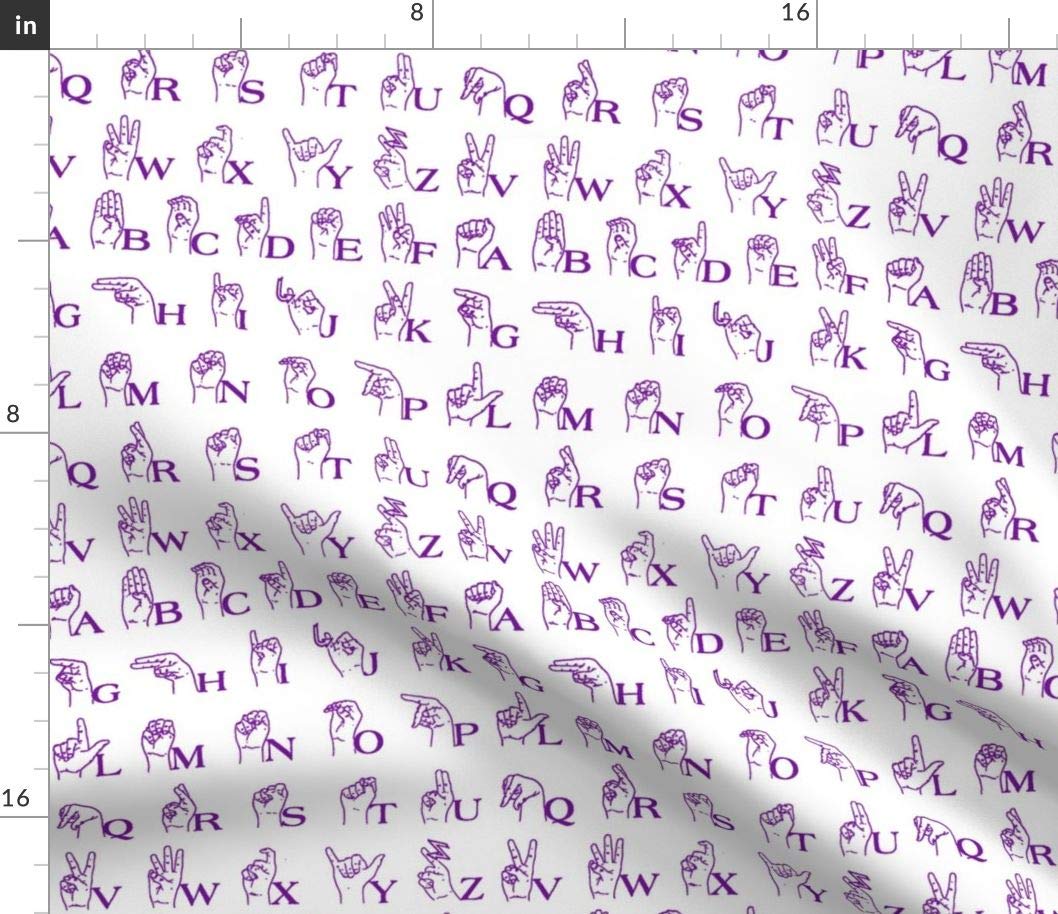 in 8 16
N O P L M
Q R S T U Q R S T U Q R
V W X Y Z V W X Y Z V W
A B C D E F A B C D E F A B
G H I J K G H I J K G H
L M N O P L M N O P L M
8
Q R S T U Q R S T U Q R
V W X Y Z V W X Y Z V W
A B C D E F A B C D E F A B C
G H I J K G H I J K G H
L M N O P L M N O P L M
16
Q R S T U Q R S T U Q R
V W X Y Z V W X Y Z